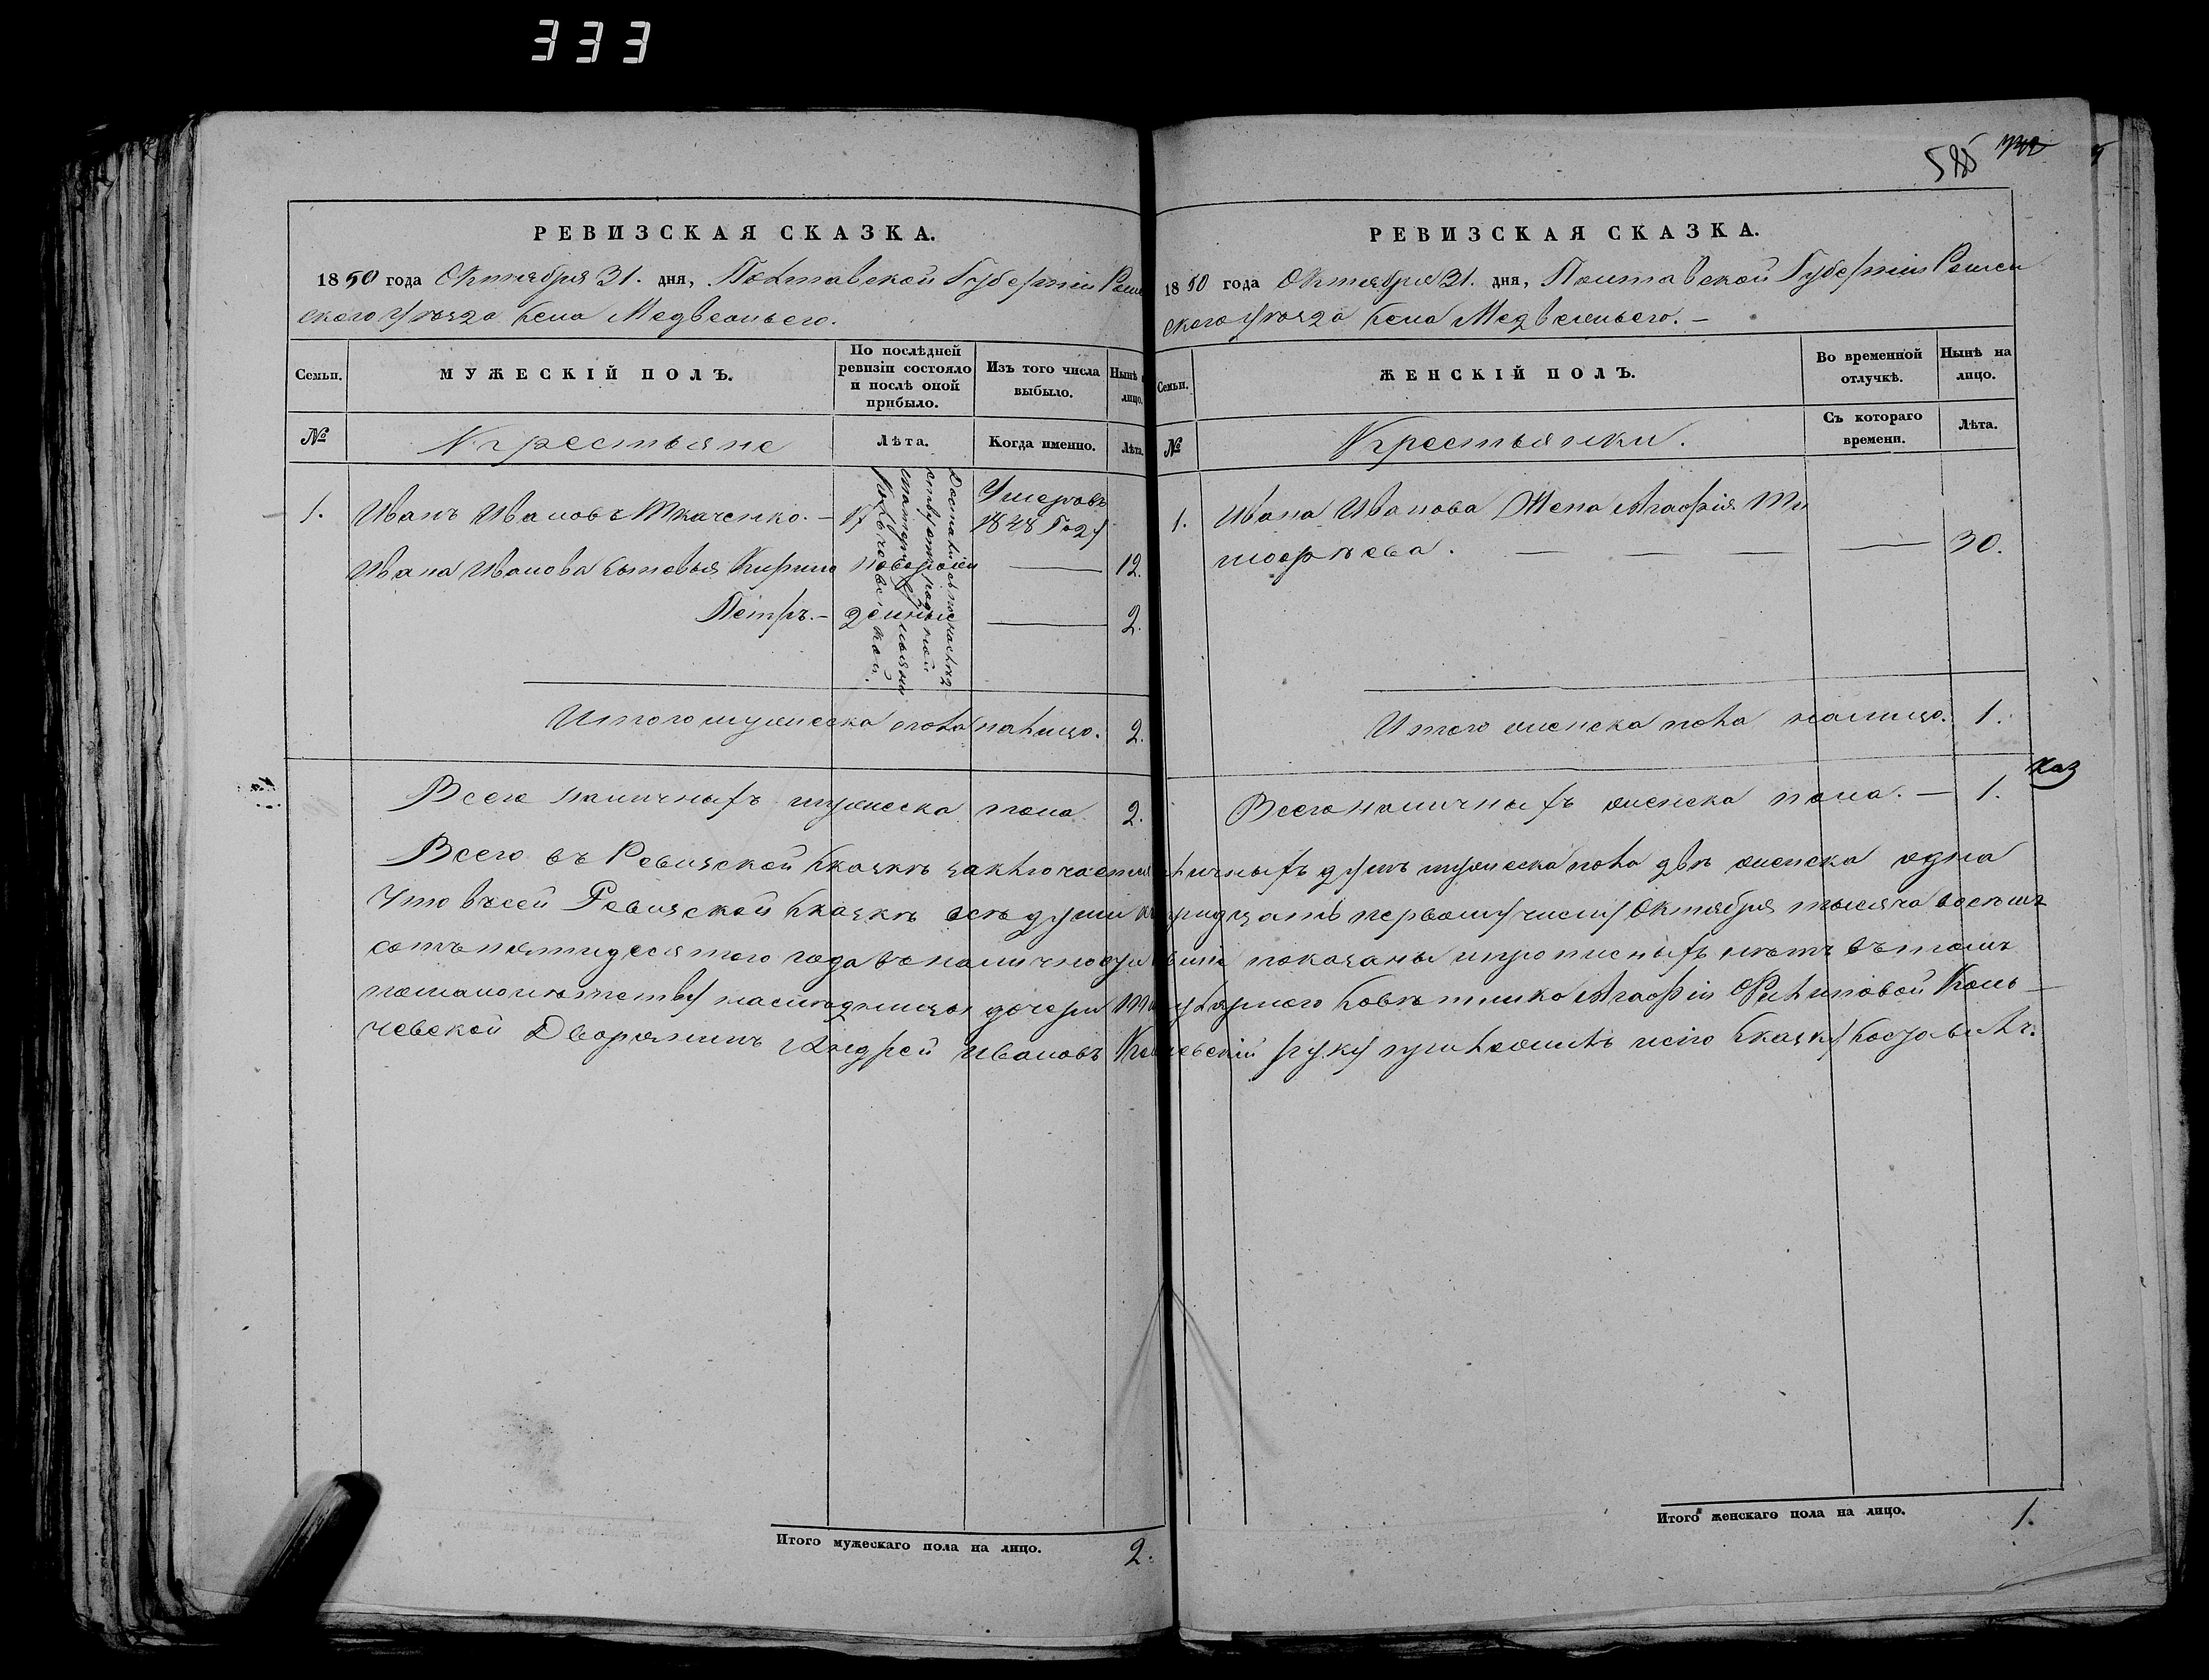 333
585
РЕВИЗСКАЯ СКАЗКА.
1850 года Октября 31. дня, Полтавской Губерніи Ромен
ского уѣзда села Медвежьего.
Семьи.
МУЖЕСКІЙ ПОЛЪ.
По послѣдней ревизіи состояло и послѣ оной прибыло.
Изъ того числа выбыло.
Нынѣ на лицо.
№
Крестьяне
Лѣта.
Когда именно.
Лѣта.
1. Иванъ Ивановъ Ткаченко. — 17 Умеръ въ 1848 Году
Ивана Иванова сыновья Кирило новорож 12.
Петръ. — денные 2.
Итого мужеска пола налицо. 2.
Всего наличныхъ мужеска пола 2.
РЕВИЗСКАЯ СКАЗКА.
1850 года Октября 31. дня, Полтавской Губерніи Ромен
ского уѣзда села Медвежьего. —
Семьи.
ЖЕНСКІЙ ПОЛЪ.
Во временной отлучкѣ.
Нынѣ на лицо.
№
Крестьянки.
Съ котораго времени.
Лѣта.
1. Ивана Иванова Жена Агафія Ти
мофѣева. — — — — 30.
Итого женска пола налицо. 1.
Всего наличныхъ женска пола. — 1.
Всего въ Ревизской сказкѣ заключается наличныхъ душъ мужеска пола двѣ женска одна
Что въ сей Ревизской сказкѣ всѣ души къ тридцать первому числу Октября тысяча восемь
сотъ пятидесятого года въ наличности бывшіе показаны и прописныхъ нѣтъ въ томъ
наслѣдницы дочери Титулярного Совѣтника Агафіи Филиповой
Дворянинъ Андрей Ивановъ руку приложилъ и сію сказку составилъ.
Итого мужескаго пола на лицо. 2.
Итого женскаго пола на лицо. 1.